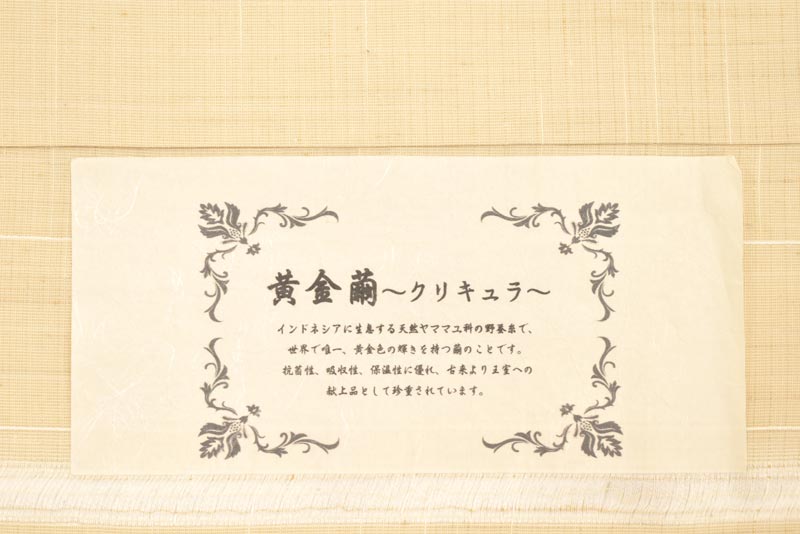 黄金繭～クリキュラ～
インドネシアに生息する天然ヤママユ科の野蚕糸で、
世界で唯一、黄金色の輝きを持つ繭のことです。
抗菌性、吸収性、保温性に優れ、古来より王室への
献上品として珍重されています。